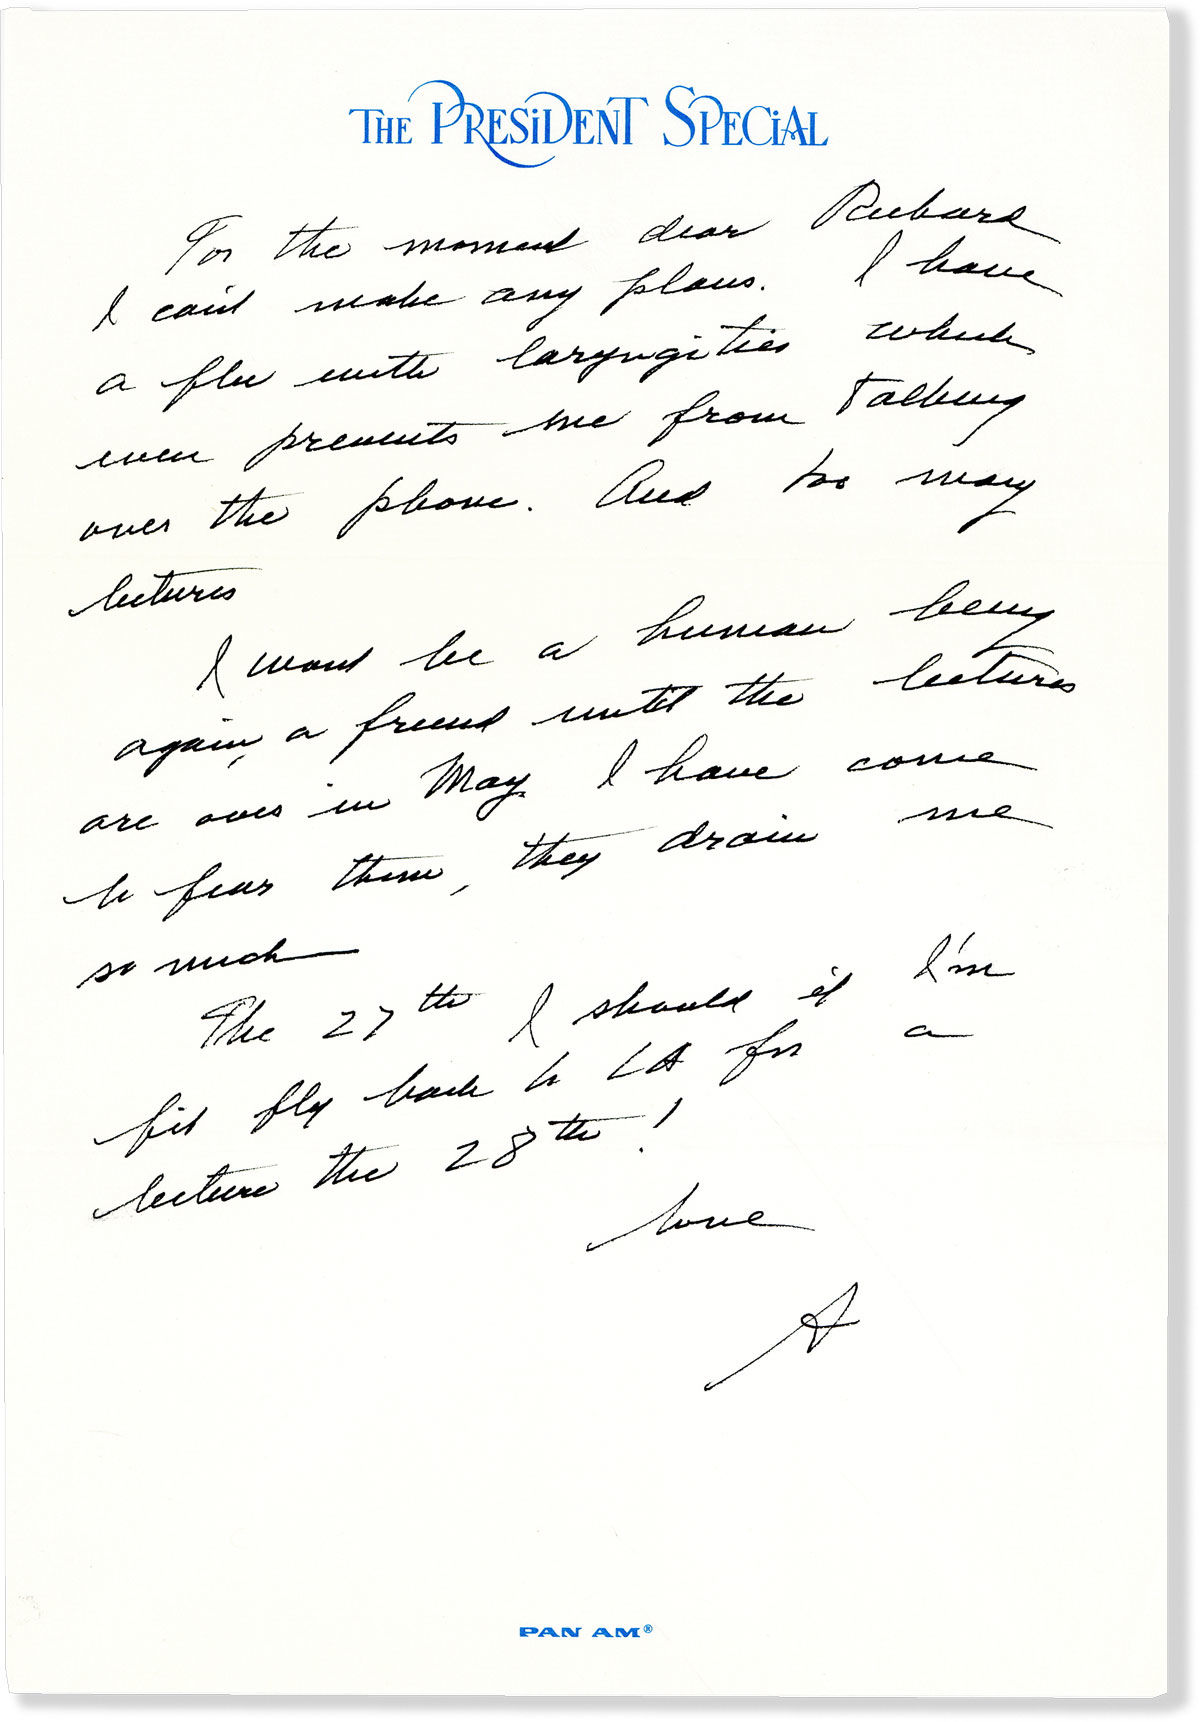 THE PRESIDENT SPECIAL
For the moment dear Richard
I can't make any plans. I have
a flu with laryngities which
even prevents me from talking
over the phone. And too many
lectures
I wont be a human being
again, a friend until the lectures
are over in May. I have come
to fear them, they drain me
so much
The 27th I should if I'm
fit fly back to LA for a
lecture the 28th!
love
A
PAN AM®